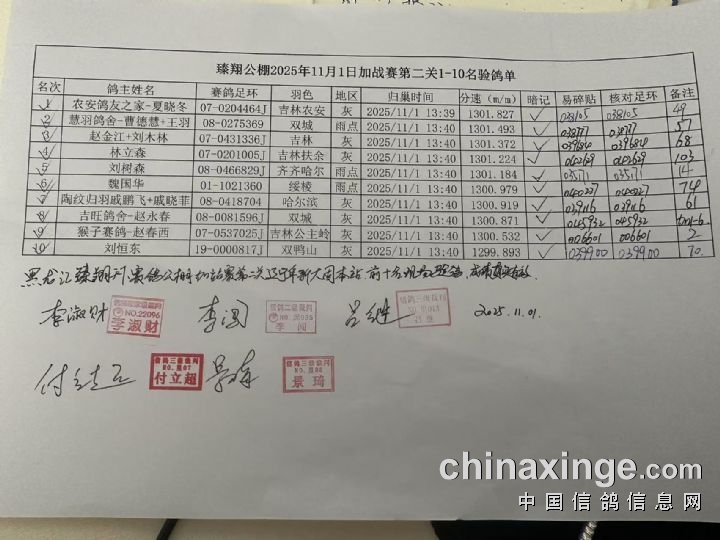 臻翔公棚2025年11月1日加战赛第二关1-10名验鸽单
名次 鸽主姓名 赛鸽足环 羽色 地区 归巢时间 分速 (m/m) 暗记 易碎贴 核对足环 备注
1 农安鸽友之家-夏晓冬 07-0204464J 吉林农安 灰 2025/11/1 13:39 1301.827 ✓ 038105 038105 49
2 慧羽鸽舍-曹德慧+王羽 08-0275369 双城 雨点 2025/11/1 13:40 1301.493 ✓ 57
3 赵金江+刘木林 07-0431336J 吉林 灰 2025/11/1 13:40 1301.372 ✓ 039684 039684 68
4 林立森 07-0201005J 吉林扶余 灰 2025/11/1 13:40 1301.224 ✓ 103
5 刘树森 08-0466829J 齐齐哈尔 雨点 2025/11/1 13:40 1301.184 ✓ 035171 035171 14
6 魏国华 01-1021360 绥棱 雨点 2025/11/1 13:40 1300.979 ✓ 040227 040227 74
7 陶纹归羽戚鹏飞+戚晓菲 08-0418704 哈尔滨 灰 2025/11/1 13:40 1300.919 ✓ 039116 039116 61
8 吉旺鸽舍-赵永春 08-0081596J 双城 灰 2025/11/1 13:40 1300.871 ✓ 045932 045932
9 猴子赛鸽-赵春西 07-0537025J 吉林公主岭 灰 2025/11/1 13:40 1300.532 ✓ 006601 006601 2
10 刘恒东 19-0000817J 双鸭山 灰 2025/11/1 13:40 1299.893 ✓ 039900 039900 70
李淑财 NO.22096 李淑财 李闯 信鸽二级裁判 李闯 信鸽三级裁判 2025.11.01.
付立超 信鸽三级裁判 付立超 景琦 信鸽三级裁判 景琦
chinaxinge.com
中国信鸽信息网